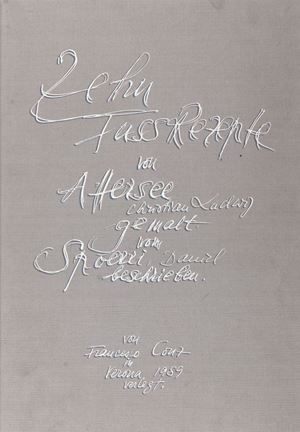 Zehn
FussRezepte
von
Attersee
Christian Ludwig
gemalt
vom
Spoerri, Daniel
beschrieben.
von
Francesco Conz
in
Verona 1989
verlegt.